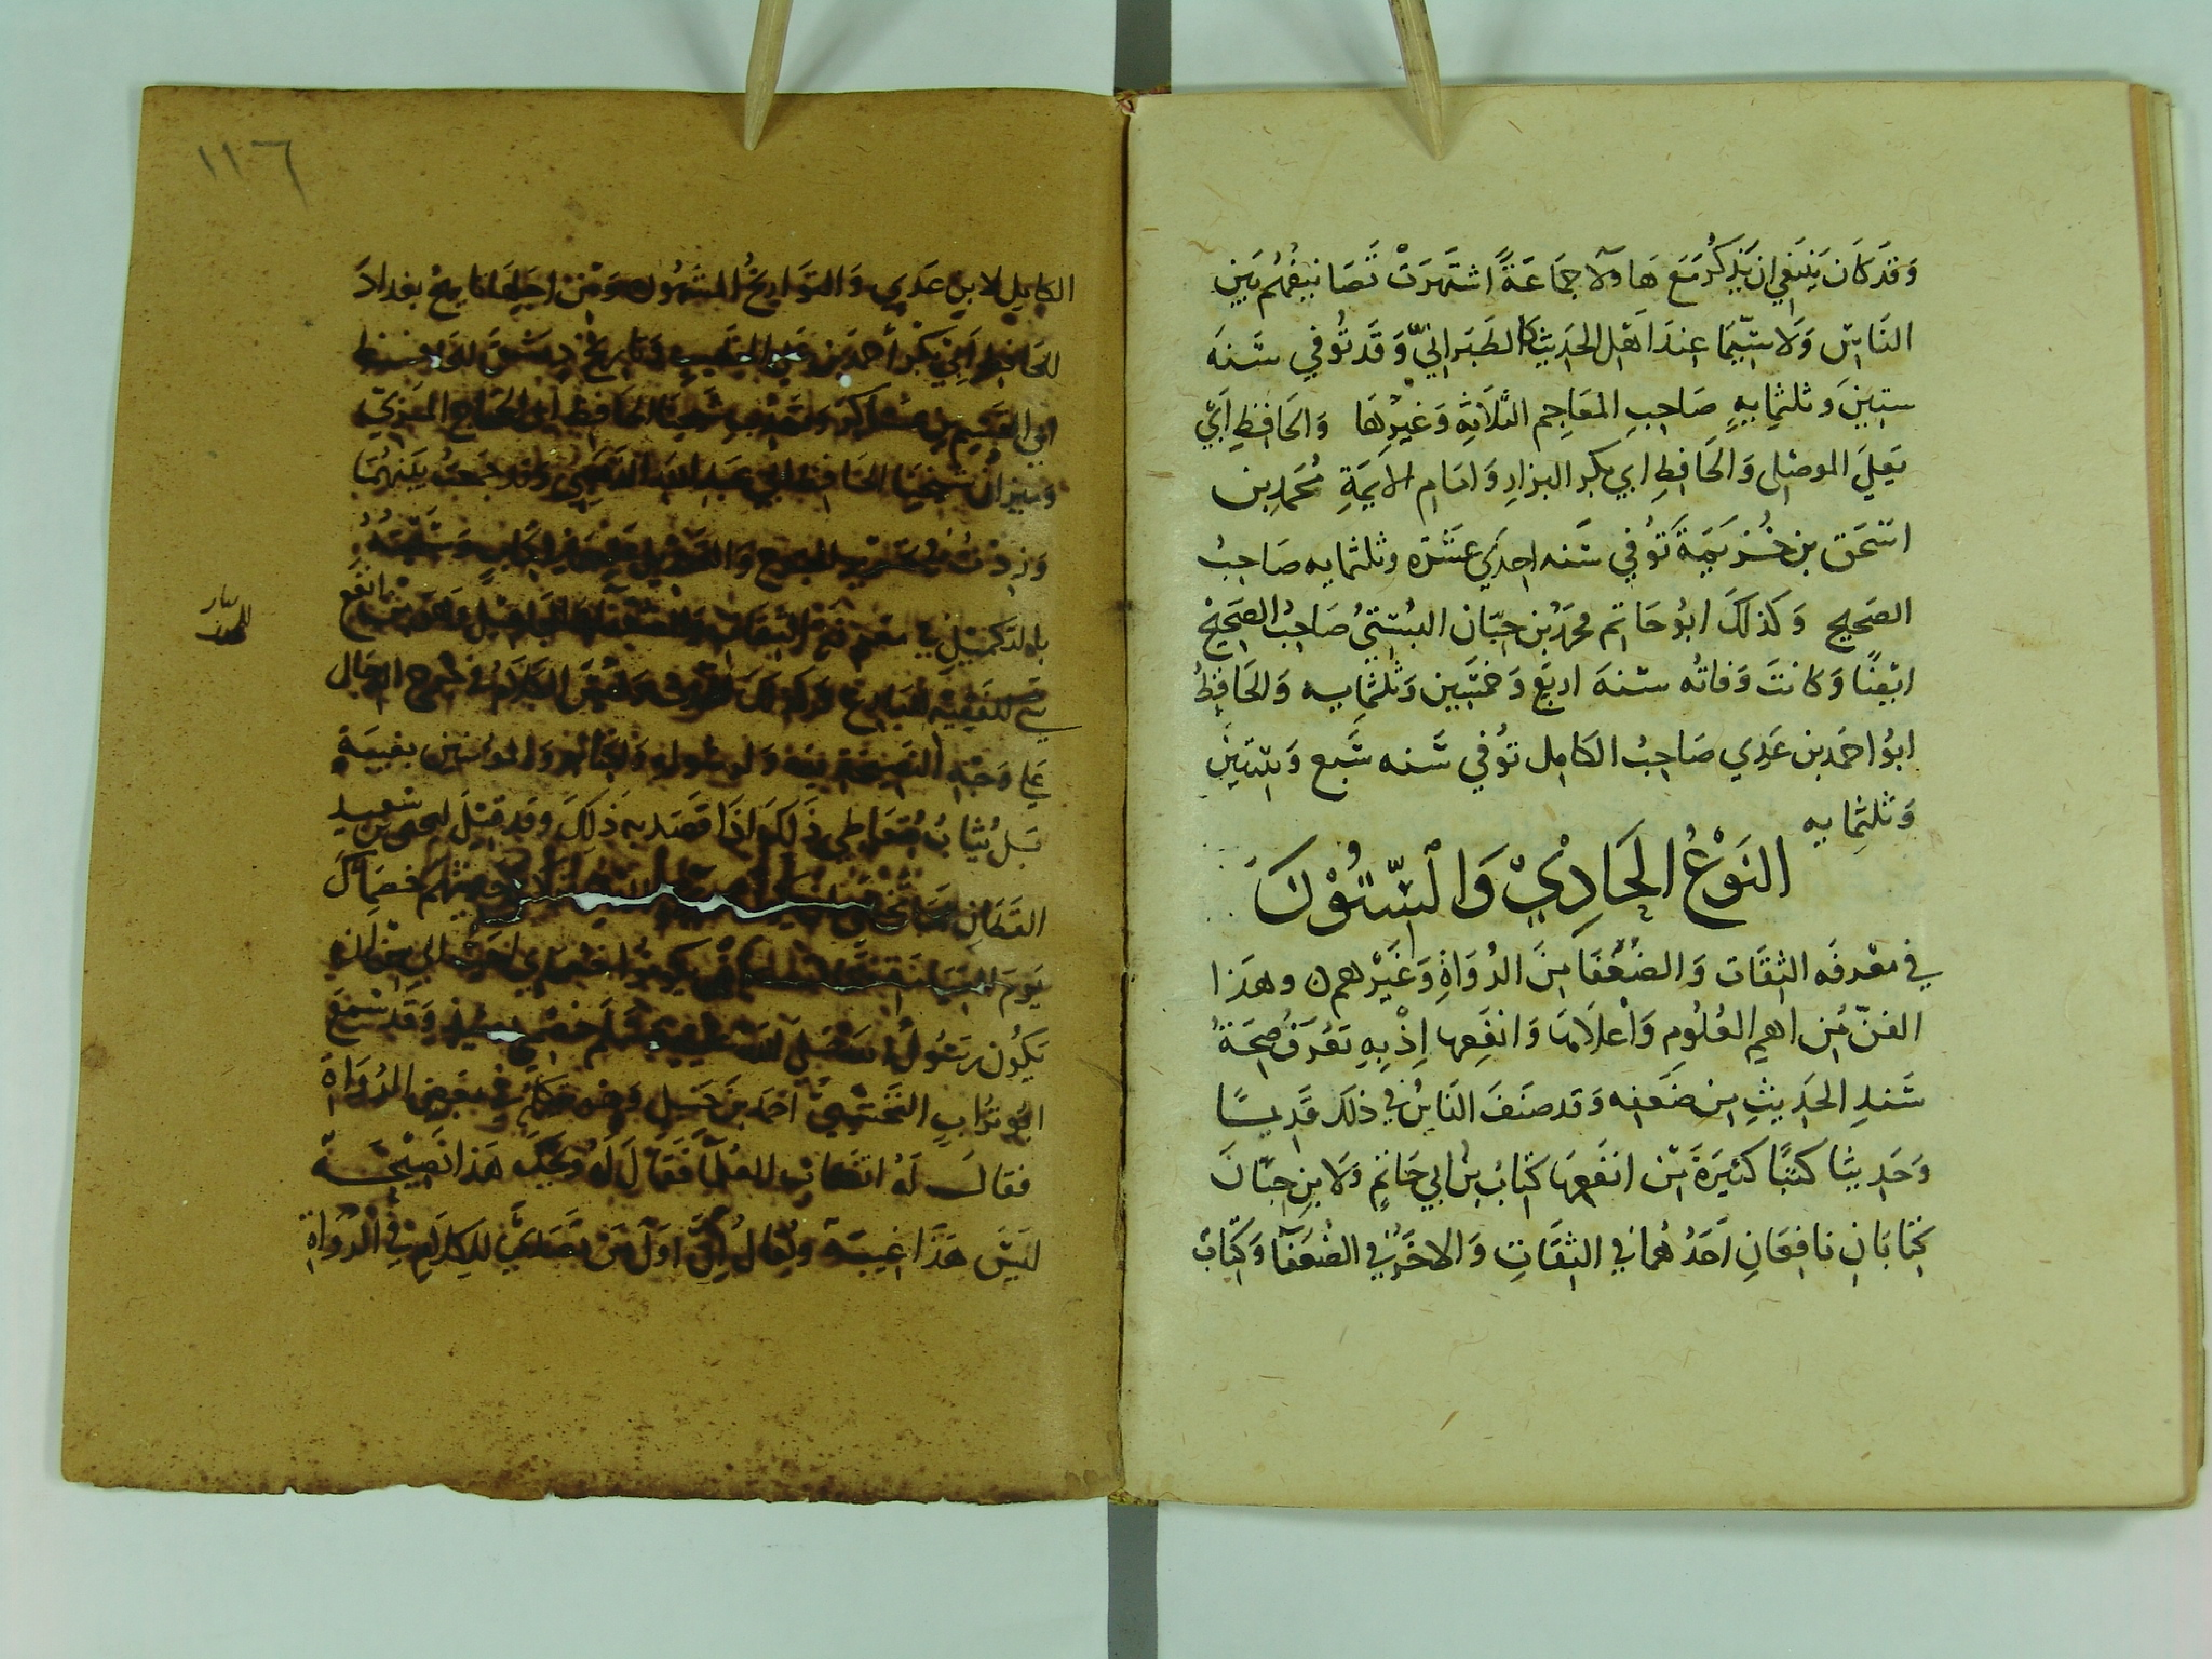 وَقَد كَانَ يَنبَغي ان يُذكَرَ مَعَ هَاولآ جَمَاعَةً اشتَهَرَتْ تَصَانيفُهُم بَين
النَاسِ وَلا سِيَّمَا عِندَ اَهْل الحَدِيث كالطَبَرانيّ وَقَد تُوُفي سَنَه
ستينَ وثلثمايةٍ صَاحِبِ المعَاجِم الثلاثَةِ وَغَيرهَا وَالحَافِظِ اَبي
يَعلَي الموصلى وَالحَافِظِ ابي بكر البزارِ وَامَام الايمَةِ مُحَمدِ بن
اسْحَق بن خُزيمَة تَوُفي سَنه احدَي عَشره وثلثمايه صَاحِبُ
الصَحِيح وَكَذلكَ ابوُ حَاتم محمدُ بن حبّان البُستيُ صَاحِبُ الصَحِيح
ايْضًا وَكانتَ وَفاتُه سَنهَ اربَع وَخمسين وَثلثمايه وَالحَافِظُ
ابوُ احمَد بن عَدِي صَاحِبُ الكَامِل توُفي سَنه سَبع وَستينَ
وَثلثمايه
النَوْعُ الحَادِيْ وَالسِّتُوْنَ
في معرفَه الثقَات وَالضُعَفَا مِنَ الرُوَاةِ وَغَيْرهم ن وهَذا
الفنّ مُن اهمِ العُلُومِ وَأعْلَاهَا وَانفَعِها اِذْ بِهِ تعُرَفُ صِحَةُ
سَندِ الحَدِيثِ مِن ضَعفِه وَقد صَنفَ النَاسُ في ذلكَ قَدِيمًا
وَحَديثًا كتبًا كثيرَةَ مِن انفَعِهَا كتَابُ بن ابي حَاتمٍ وَلابن حِبَّانَ
كِتابَانِ نافِعَانِ اَحَدُهُمَا في الثقَاتِ وَالاخَرُ في الضُعَفآ وَكتَابُ
١١٦
الكامِل لابن عَدي وَالتوَاريخُ المشهُوره وَمِن اجَلهَا تاريخُ بغدادَ
للحَافِظ اَبي بكر أحمدَ بن علي الخَطيب وَتاريخُ دِمشقَ للحَافِظ
ابي القسم بن عسَاكرَ وَتهذيبُ شيخنا الحَافظ ابى الحجاج المِزيّ
وَميزانُ شيخنَا الحَافظ ابي عبد الله الذهبي وَقد جَمعتُ بَينهُمَا
وَزدتُ في تحرير الجرح وَالتعديل عليهما في كتاب وَسَميْتهُ
بالتكميل في معرفة الثقات والضعفآ والمجاهيل وهو من انفع
شي للفَقيه البَارع وَكذلكَ للمحدث وَليسَ الكلامُ في جَرح الرجَال
عَلي وَجه النصيحة لله وَلرسُوله وَلكتابه وَالمومنين بغيبَةٍ
بَل يُثابُ مُتعَاطِي ذَلكَ اذَا قَصَد به ذلكَ وَقد قيْل ليحيى بن سَعيد
القطانِ اما تخشى ان يكون هولا الذين تركت حديثهم خصمَاك
يَومَ القيامَة قال لان يكونوا خصمَاي احَبُّ الي من ان
يَكُون رَسُولُ الله صَلى الله عليه وسَلم خصمي وَقد سَمعَ
ابو تراب النخشبيُّ احَمد بن حَنبل وَهو يتكلم في بَعض الرُوَاة
فقالَ لَهُ اتغتاب العُلمآ فقَالَ لَهُ وَيحكَ هَذا نَصِيْحَةٌ
لَيسَ هَذا غيبَة وَيُقال اِنَّ اوَل مَن تصَدي للكَلامِ في الروَاة